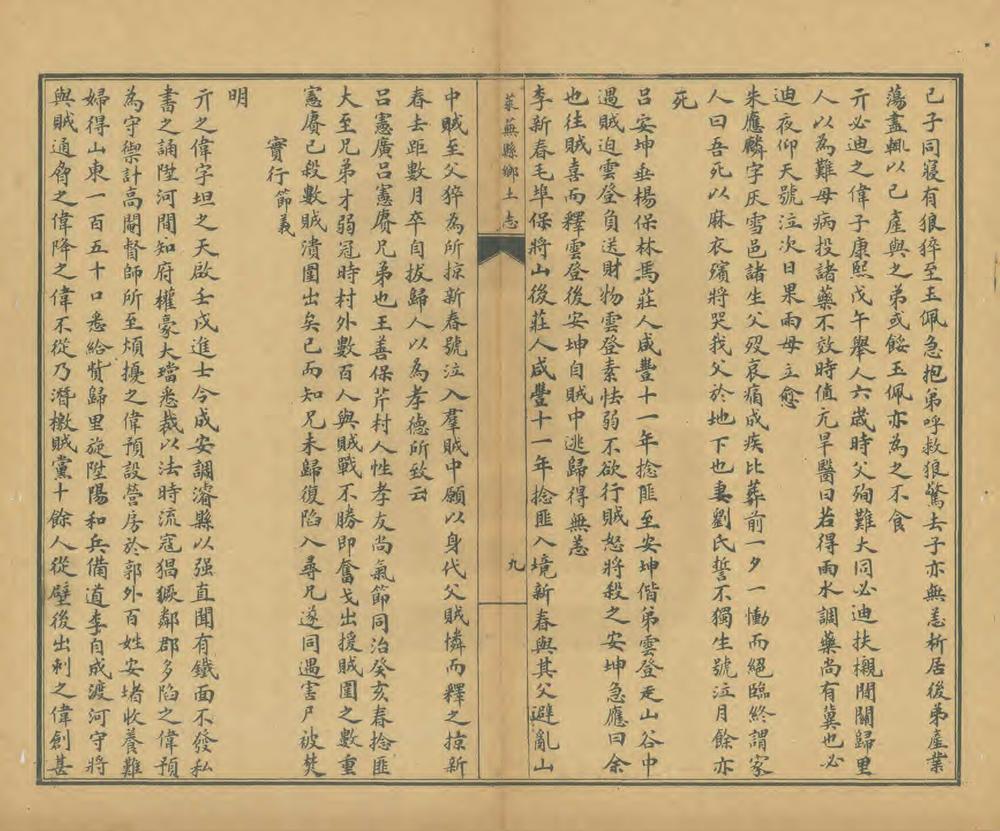 己子同寢有狼猝至玉佩急抱弟呼救狼驚去子亦無恙析居後弟產業
蕩盡輒以己產與之弟或餒玉佩亦為之不食
亓必迪之偉子康熙戊午舉人六歲時父殉難大同必迪扶櫬間關歸里
人以為難母病投諸藥不效時值亢旱醫曰若得雨水調藥尚有冀也必
迪夜仰天號泣次日果雨母立愈
朱應麟字仄雪邑諸生父歿哀痛成疾比葬前一夕一慟而絕臨終謂家
人曰吾死以麻衣殯將哭我父於地下也妻劉氏誓不獨生號泣月餘亦
死
呂安坤垂楊保林馬莊人咸豐十一年捻匪至安坤偕弟雲登走山谷中
遇賊迫雲登負送財物雲登素怯弱不欲行賊怒將殺之安坤急應曰余
也往賊喜而釋雲登後安坤自賊中逃歸得無恙
李新春毛埠保將山後莊人咸豐十一年捻匪入境新春與其父避亂山
萊蕪縣鄉土志
九
中賊至父猝為所掠新春號泣入羣賊中願以身代父賊憐而釋之掠新
春去距數月卒自拔歸人以為孝德所致云
呂憲廣呂憲賡兄弟也王善保芹村人性孝友尚氣節同治癸亥春捻匪
大至兄弟才弱冠時村外數百人與賊戰不勝即奮戈出援賊圍之數重
憲賡已殺數賊潰圍出矣已而知兄未歸復陷入尋兄遂同遇害尸被焚
實行節義
明
亓之偉字坦之天啟壬戌進士令成安調濬縣以强直聞有鐵面不發私
書之誦陞河間知府權豪大璫悉裁以法時流寇猖獗鄰郡多陷之偉預
為守禦計高閣督師所至煩擾之偉預設營房於郭外百姓安堵收養難
婦得山東一百五十口悉給貲歸里旋陞陽和兵備道李自成渡河守將
與賊通脅之偉降之偉不從乃潛檄賊黨十餘人從壁後出刺之偉創甚